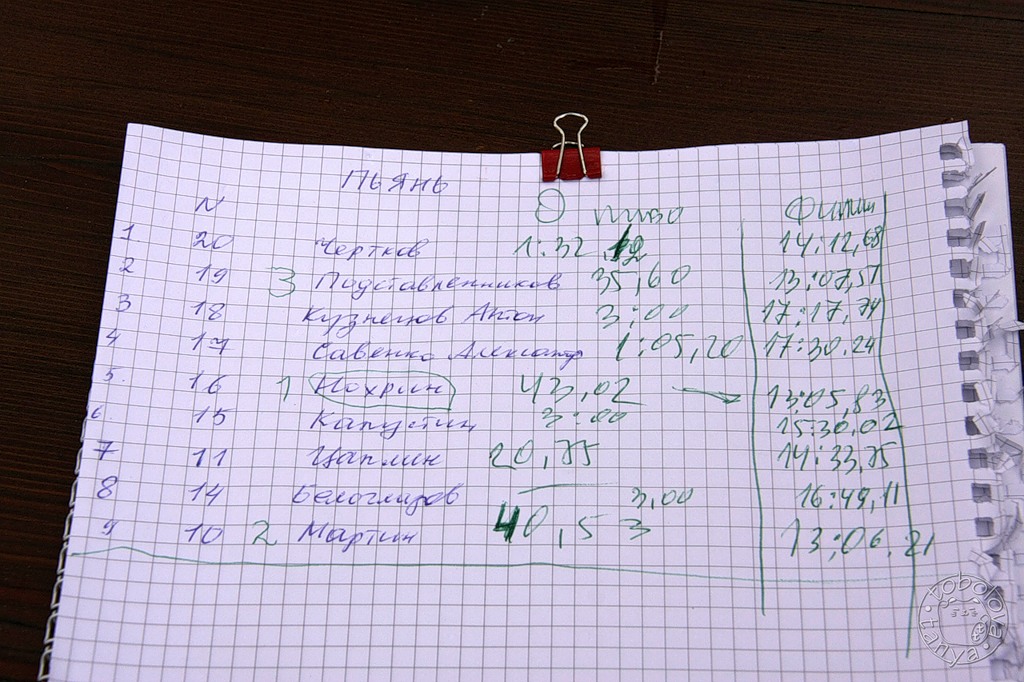 ПЬЯНЬ
N пиво Финиш
1 20 Чертков 1:32 14:12,68
2 19 3 Подставленников 35,60 13:07,57
3 18 Кузнецов Антон 3:00 17:17,74
4 17 Савенко Александр 1:05,20 17:30.24
5. 16 1 Нохрин 43,02 13:05,83
6. 15 Капустин 3:00 15:30,02
7 11 Цаплин 20,75 14:33,75
8 14 Белоглазов 3,00 16:49,11
9 10 2 Мартин 40,53 13:06.21
tanya